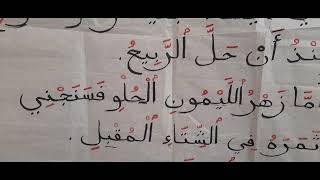 مُنْذُ أَنْ حَلَّ الرَّبِيعُ.
أَمَّا زَهْرُ اللَّيْمُونِ الْحُلْوِ فَسَنَجْنِي
ثَمَرَهُ فِي الشِّتَاءِ الْمُقْبِلِ.